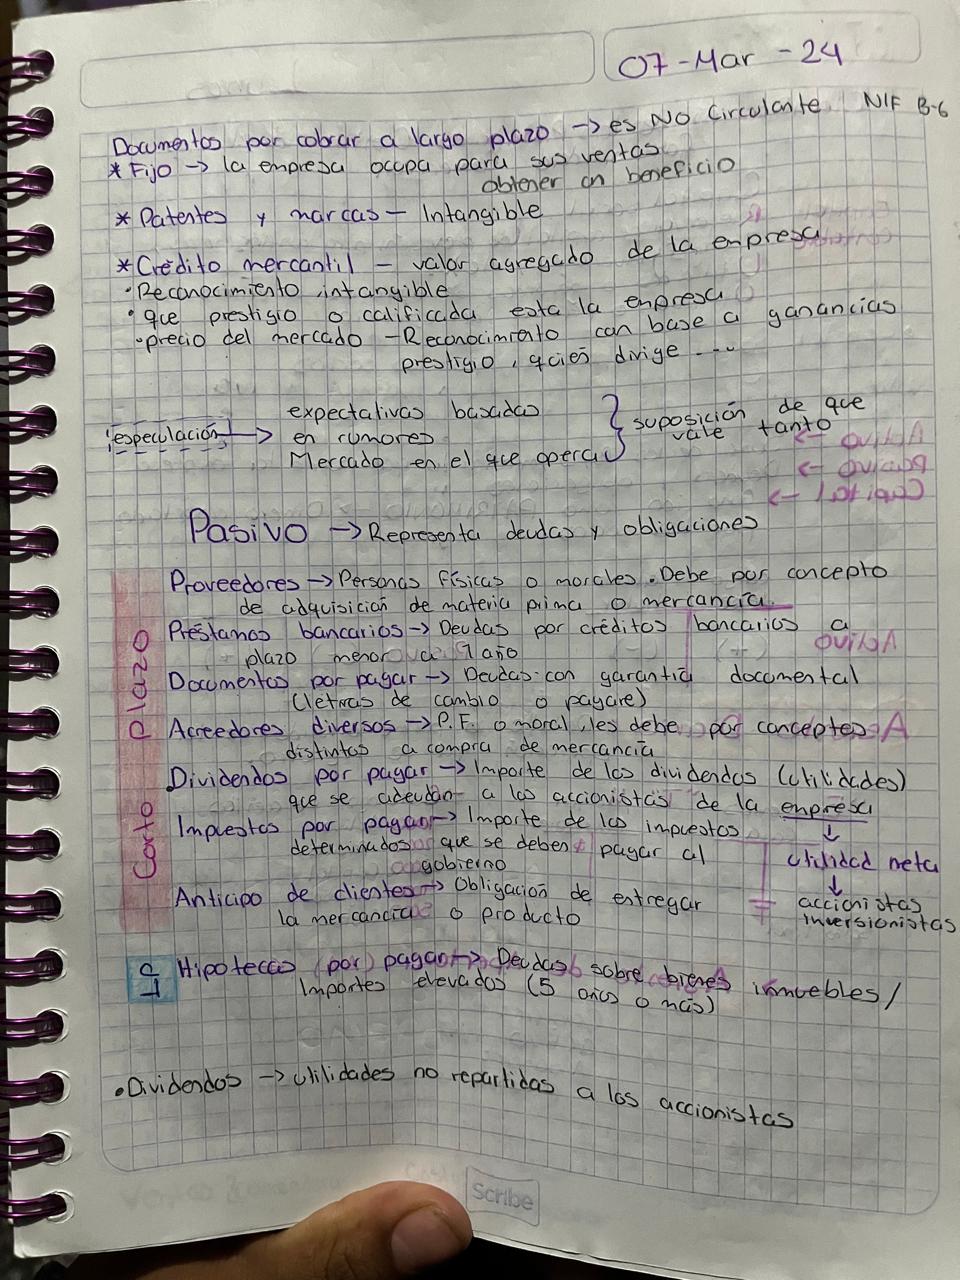 07-Mar-24
Documentos por cobrar a largo plazo → es NO Circulante NIF B-6
* Fijo → la empresa ocupa para sus ventas
obtener un beneficio
* Patentes y marcas - Intangible
* Crédito mercantil - valor agregado de la empresa
• Reconocimiento intangible
• que prestigio o calificada esta la empresa
• precio del mercado - Reconocimiento con base a ganancias
prestigio, quien dirige ...
expectativas basadas
especulación → en rumores } suposición de que vale tanto
Mercado en el que opera
Pasivo → Representa deudas y obligaciones
Corto Plazo
Proveedores → Personas físicas o morales. Debe por concepto
de adquisición de materia prima o mercancía.
Préstamos bancarios → Deudas por créditos bancarios a
plazo menor a 1 año
Documentos por pagar → Deudas con garantía documental
(letras de cambio o pagare)
Acreedores diversos → P.F. o moral, les debe por conceptos
distintos a compra de mercancía
Dividendos por pagar → Importe de los dividendos (utilidades)
que se adeudan a los accionistas de la empresa
↓
utilidad neta
↓
accionistas
inversionistas
Impuestos por pagar → Importe de los impuestos
determinados que se deben pagar al
gobierno
Anticipo de clientes → Obligación de entregar
la mercancía o producto
LP
Hipotecas por pagar → Deudas sobre bienes inmuebles /
Importes elevados (5 años o más)
• Dividendos → utilidades no repartidas a los accionistas
Scribe